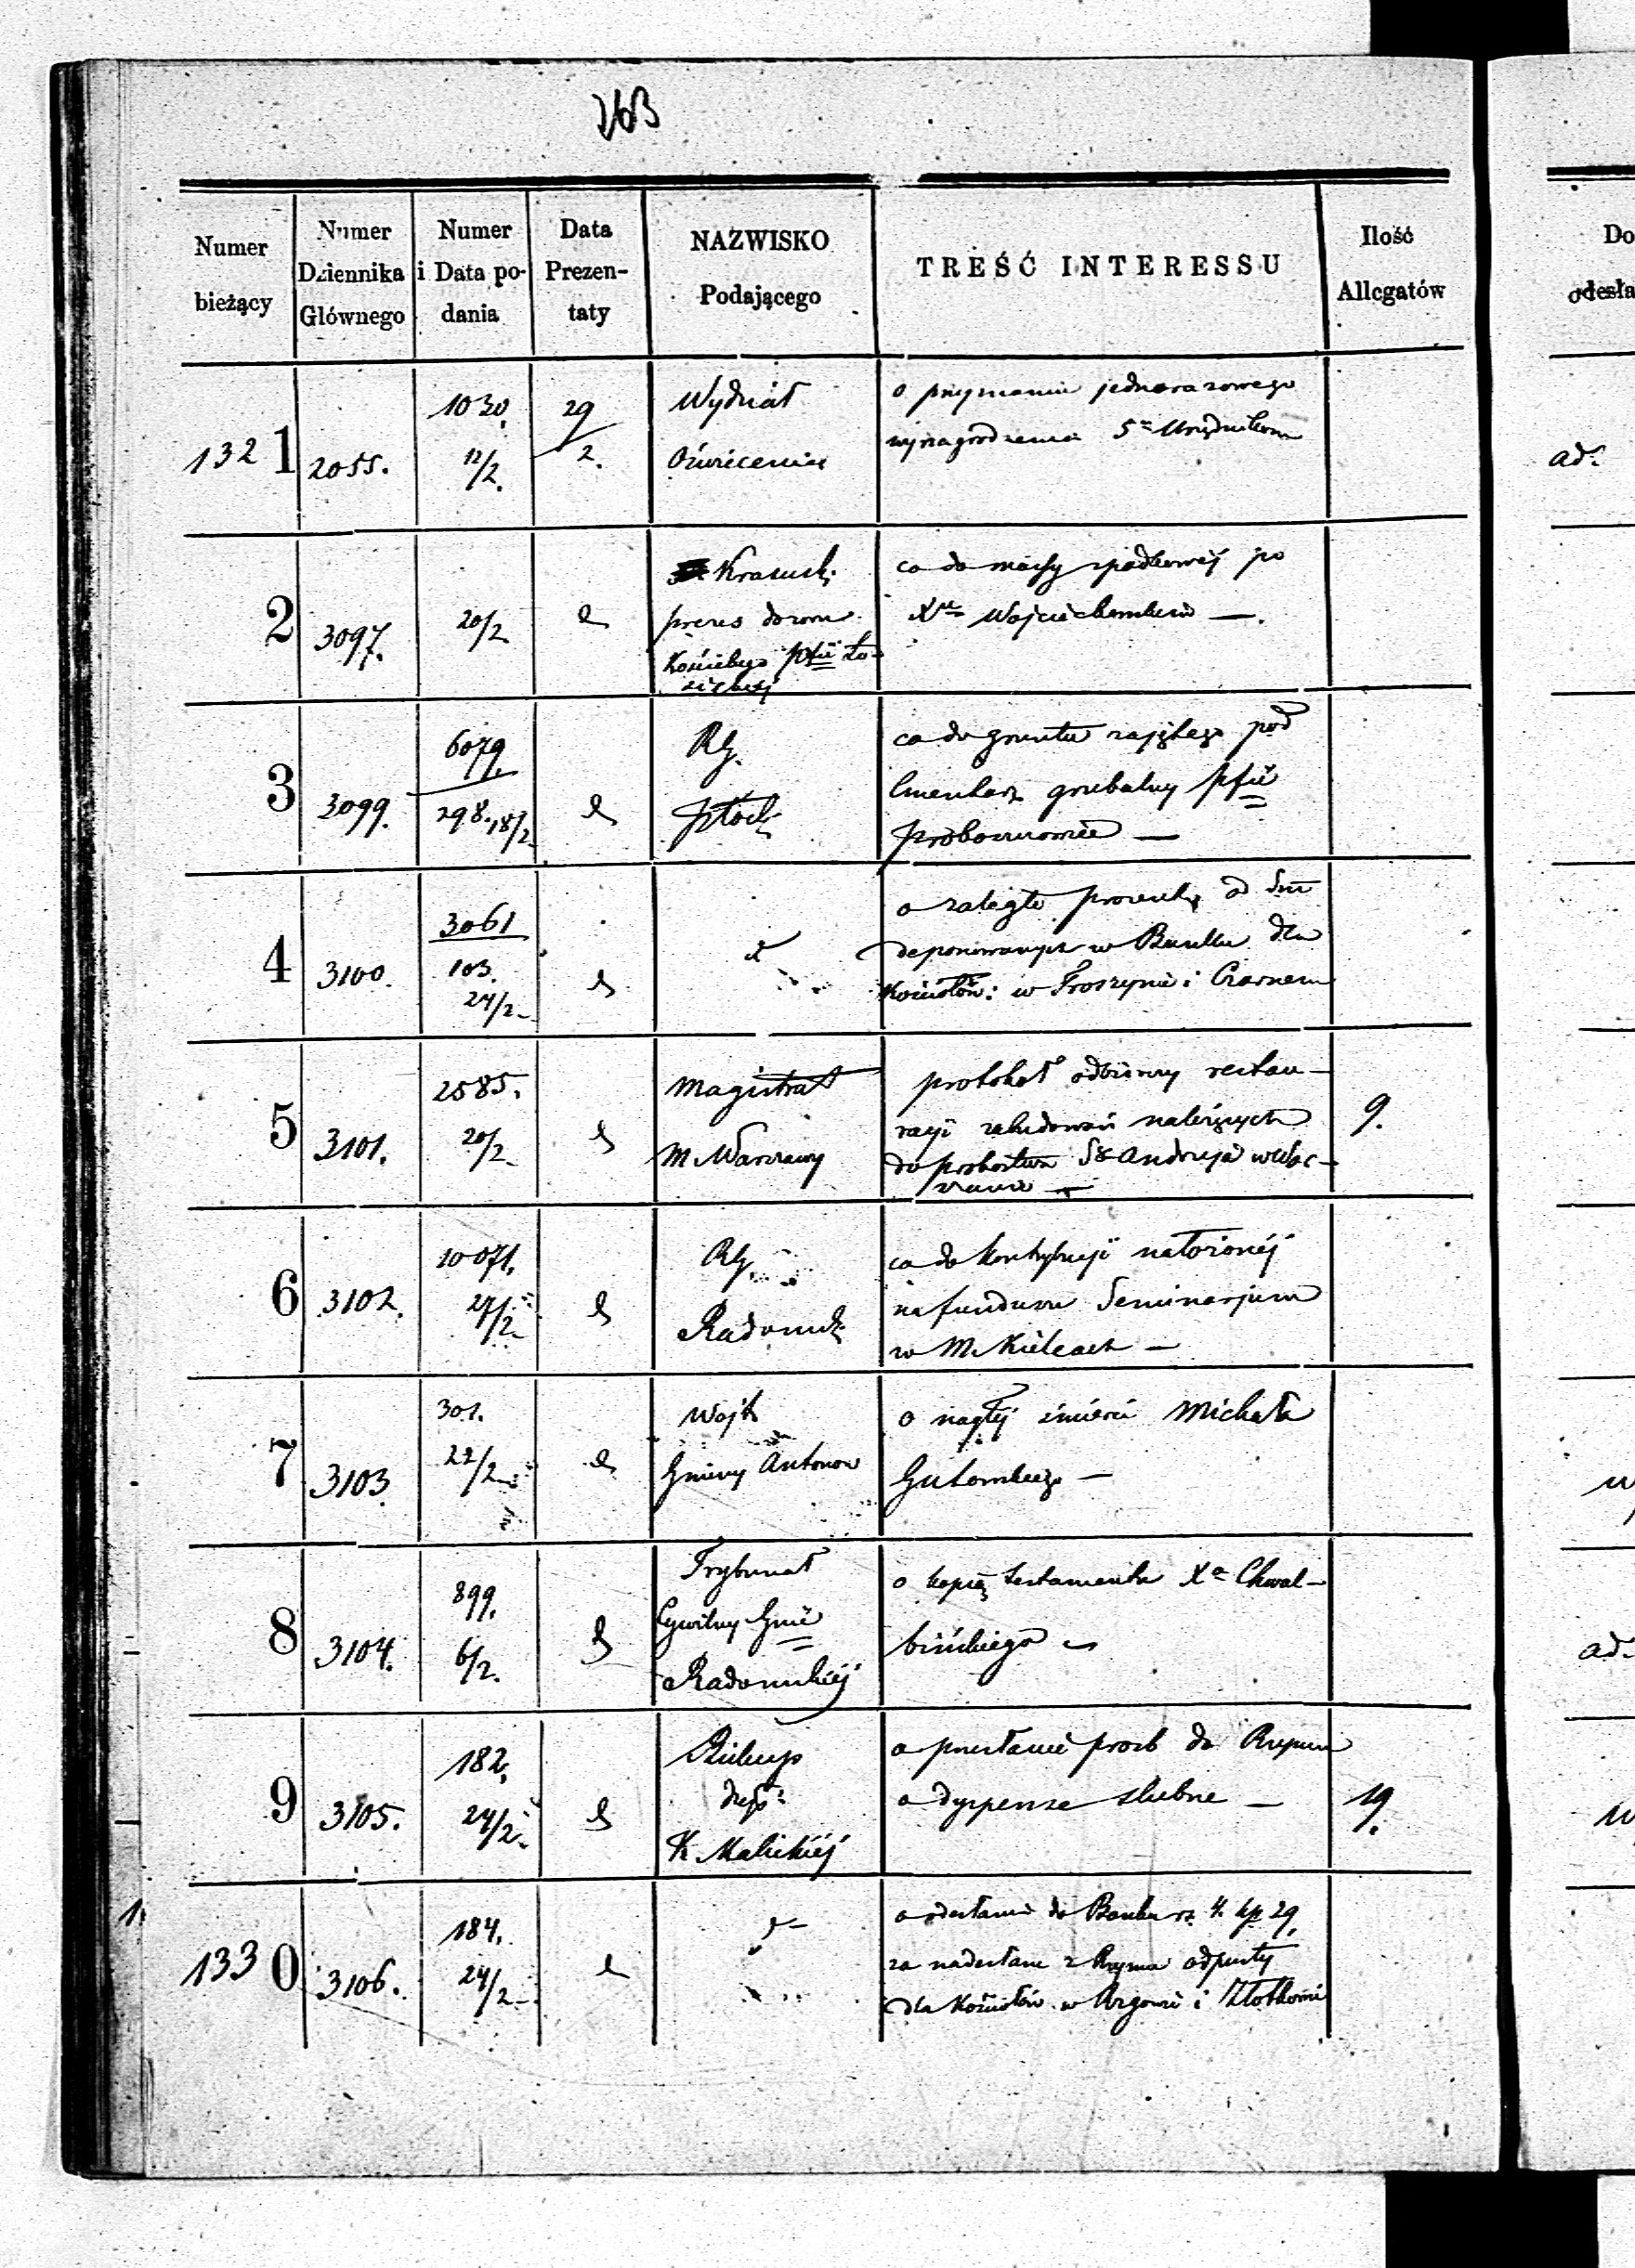 263
Numer bieżący
Numer Dziennika Głównego
Numer i Data podania
Data Prezentaty
NAZWISKO Podającego
TREŚĆ INTERESSU
Ilość Allegatów
Do
odesła
1321
2055.
1030.
12/2.
29/2.
Wydział
Oświecenia
o przyznanie jednorazowego
wynagrodzenia 5 Urzędnikom
ad.
2
3097.
20/2
Krasuski
prezes dozoru
Kościelnego
co do massy spadkowej po
3
3099.
6079.
298. 18/2
RG.
Płocki
co do gruntu zajętego pod
Cmentarz grzebalny
4
3100.
3061
103.
24/2
o zaległe procenta od
deponowanych w Banku dla
Kościołów: w i Czarnem
5
3101.
2585.
20/2
Magistrat
M. Warszawy
protokoł odbiorczy restau-
racyi zabudowań należących
do probostwa Sgo Andrzeja w
9.
6
3102.
10071.
27/2
RG.
Radomski
co do kontrybucyi nałożonéj
na fundusz Seminarjum
w M. Kielcach —
7
3103
301.
22/2
Wójt
Gminy Antonow
o nagłéj śmierci Michała
8
3104.
899.
6/2.
Trybunał
Cywilny Gnii
Radomskiéj
o kopią testamentu Xa Chwal-
bińskiego
ad.
9
3105.
182.
24/2
Biskup
K. Kaliskiéj
o przesłanie prozb do Rzymu
o dyspense slubne —
19.
1.
1330
3106.
184.
24/2
o odesłanie do Banku rs. 4. kp 29,
za nadesłane z Rzymu odpusty
dla Kościołów w i